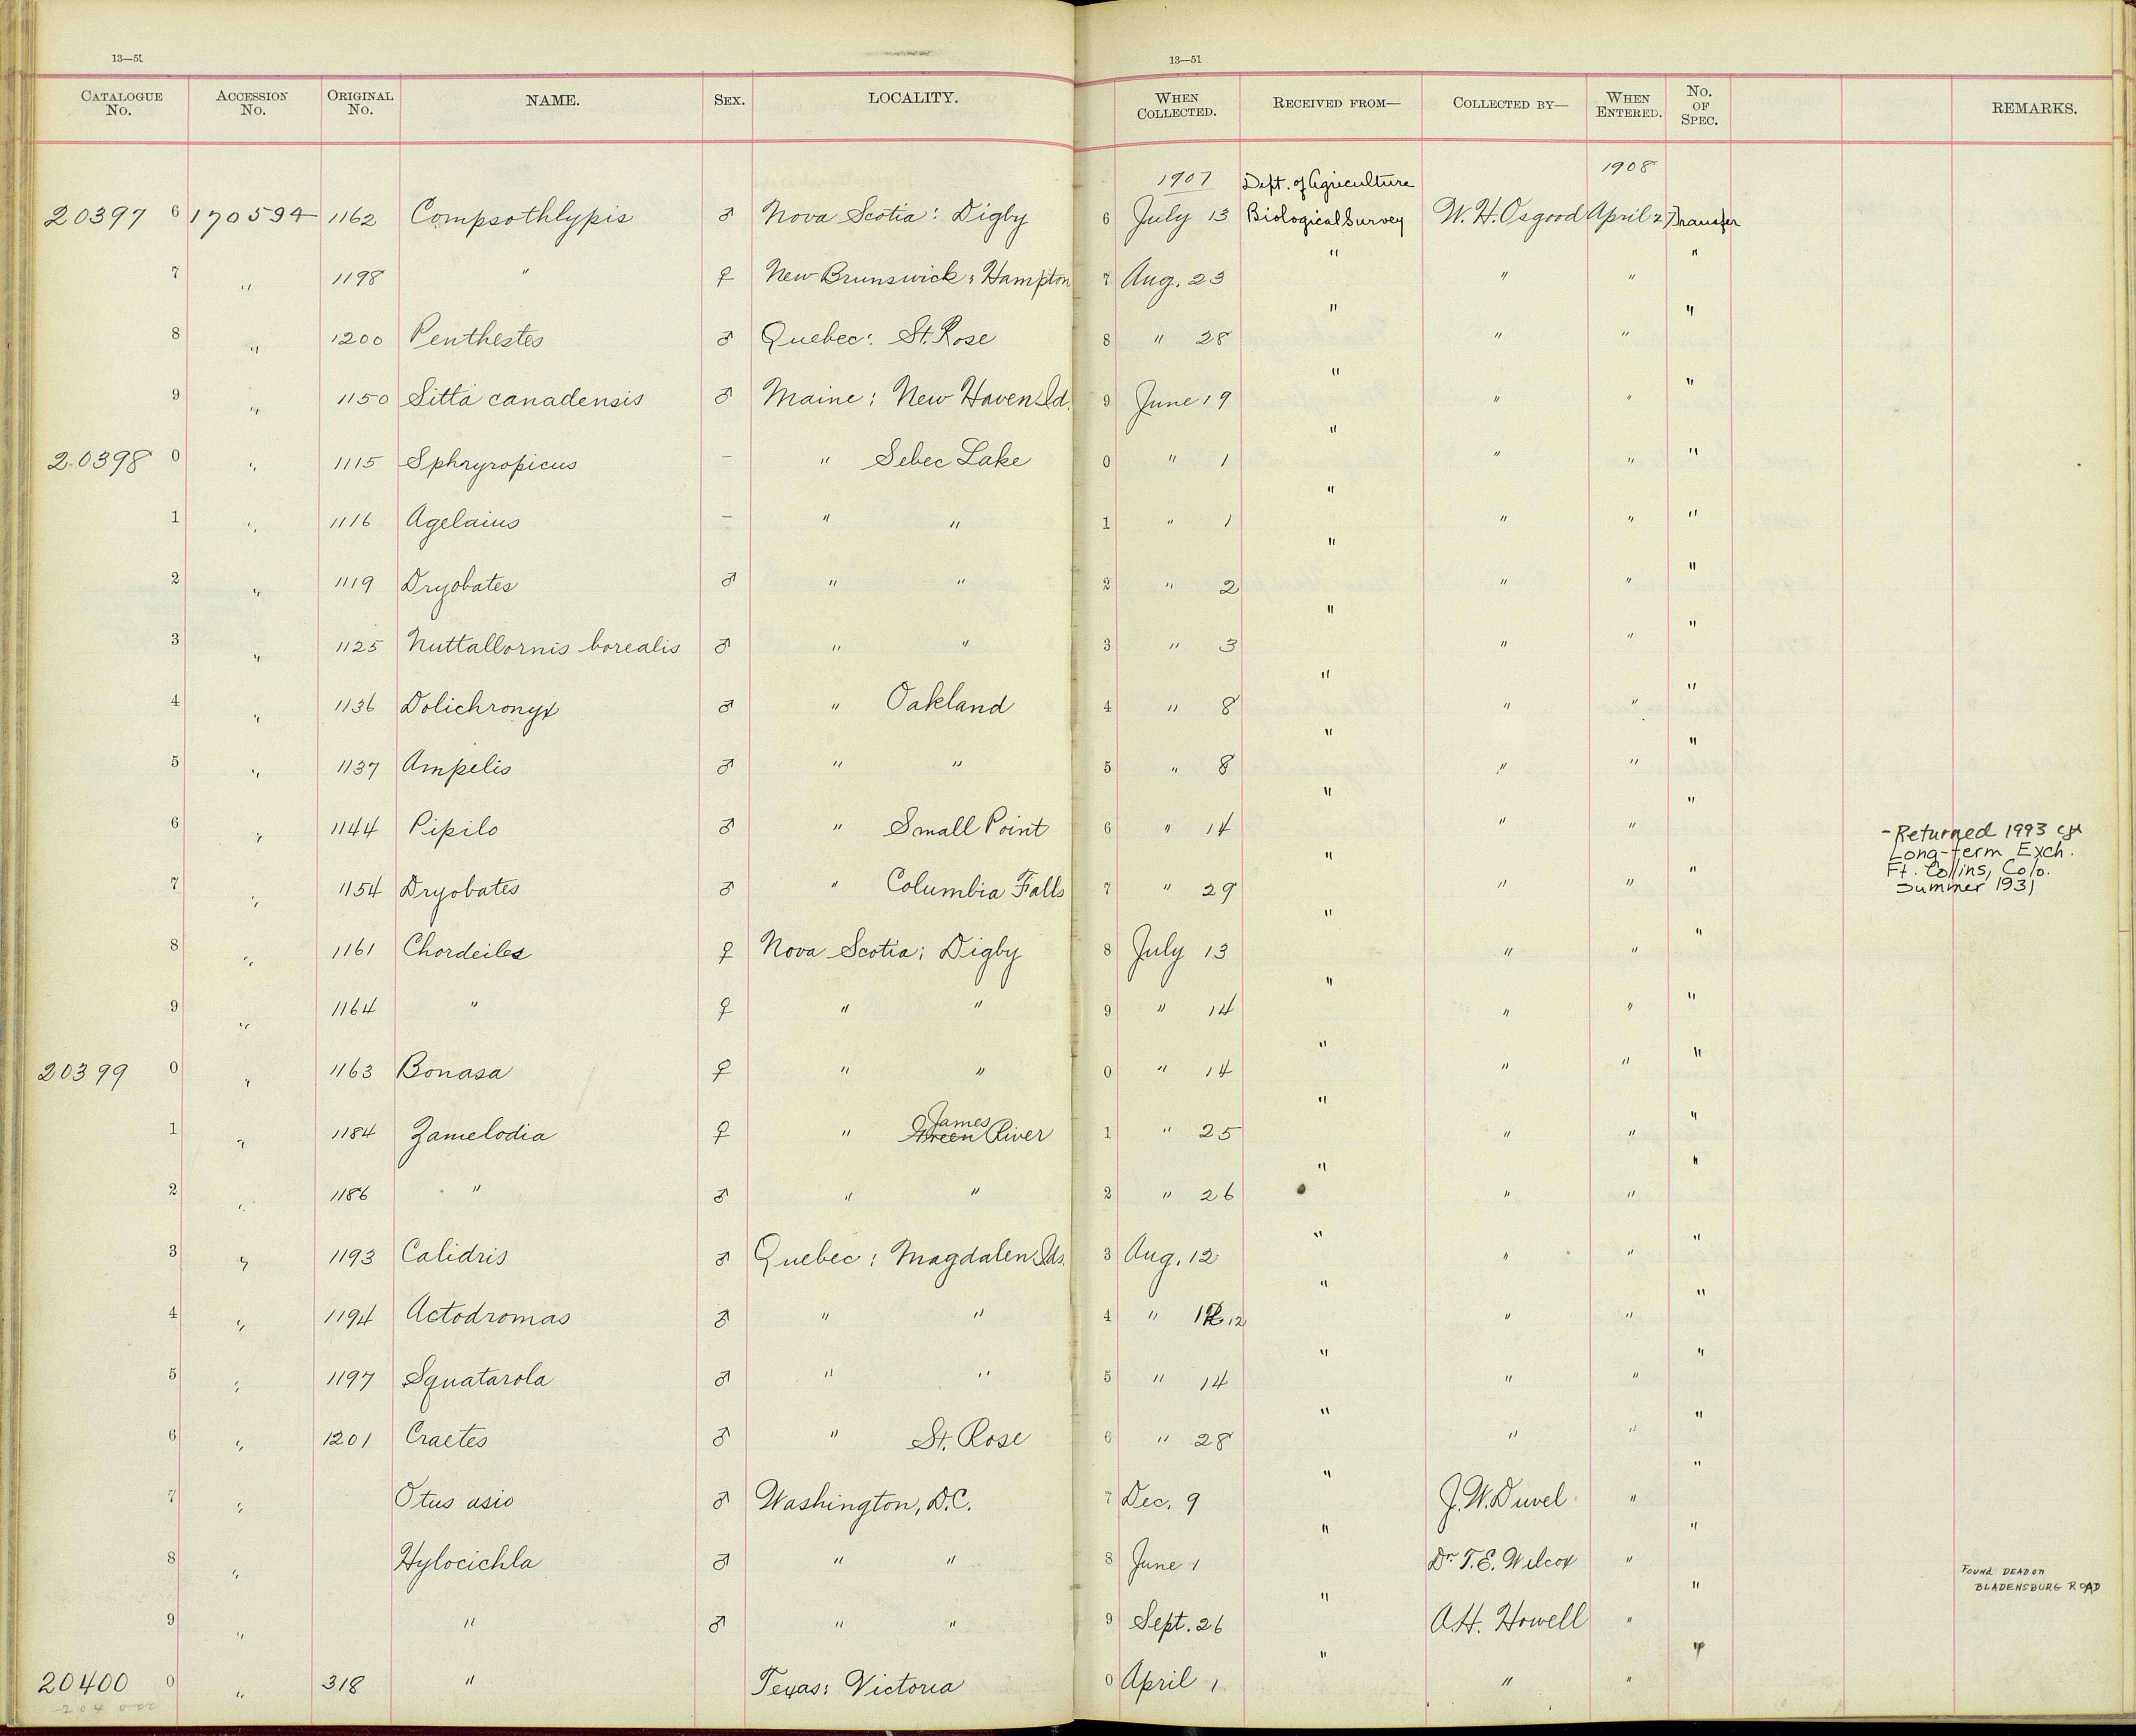 13—51 13—51
CATALOGUE No. ACCESSION No. ORIGINAL No. NAME. SEX. LOCALITY. WHEN COLLECTED. RECEIVED FROM— COLLECTED BY— WHEN ENTERED. No. OF SPEC. REMARKS.
1907 Dept. of Agriculture 1908
20397 6 170594 1162 Compsothlypis ♂ Nova Scotia: Digby 6 July 13 Biological Survey W. H. Osgood April 27 Transfer
7 " 1198 " ♀ New Brunswick: Hampton 7 Aug. 23 " " " "
8 " 1200 Penthestes ♂ Quebec: St. Rose 8 " 28 " " " "
9 " 1150 Sitta canadensis ♂ Maine: New Haven Id. 9 June 19 " " " "
20398 0 " 1115 Sphryropicus – " Sebec Lake 0 " 1 " " " "
1 " 1116 Agelaius – " " 1 " 1 " " " "
2 " 1119 Dryobates ♂ " " 2 " 2 " " " "
3 " 1125 Nuttallornis borealis ♂ " " 3 " 3 " " " "
4 " 1136 Dolichronyx ♂ " Oakland 4 " 8 " " " "
5 " 1137 Ampelis ♂ " " 5 " 8 " " " "
6 " 1144 Pipilo ♂ " Small Point 6 " 14 " " " " -Returned 1993
Long-term Exch.
Ft. Collins, Colo.
Summer 1931
7 " 1154 Dryobates ♂ " Columbia Falls 7 " 29 " " " "
8 " 1161 Chordeiles ♀ Nova Scotia: Digby 8 July 13 " " " "
9 " 1164 " ♀ " " 9 " 14 " " " "
20399 0 " 1163 Bonasa ♀ " " 0 " 14 " " " "
1 " 1184 Zamelodia ♀ " James Green River 1 " 25 " " " "
2 " 1186 " ♂ " " 2 " 26 " " " "
3 " 1193 Calidris ♂ Quebec: Magdalen Ids. 3 Aug. 12 " " " "
4 " 1194 Actodromas ♂ " " 4 " 12 " " " "
5 " 1197 Squatarola ♂ " " 5 " 14 " " " "
6 " 1201 Craetes ♂ " St. Rose 6 " 28 " " " "
7 " Otus asio ♂ Washington, D.C. 7 Dec. 9 " J. W. Duvel " "
8 " Hylocichla ♂ " " 8 June 1 " Dr. T. E. Wilcox " " FOUND DEAD on
BLADENSBURG ROAD
9 " " ♂ " " 9 Sept. 26 " A.H. Howell " "
20400 0 " 318 " Texas: Victoria 0 April 1 " " " "